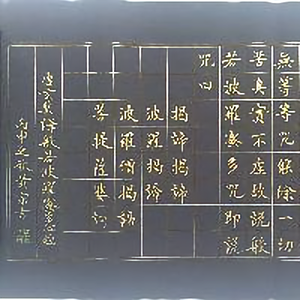 無等等咒能除一切
苦真實不虛故說般
若波羅蜜多咒即說
咒曰
揭諦揭諦
波羅揭諦
波羅僧揭諦
菩提薩婆訶
般若波羅蜜多心經